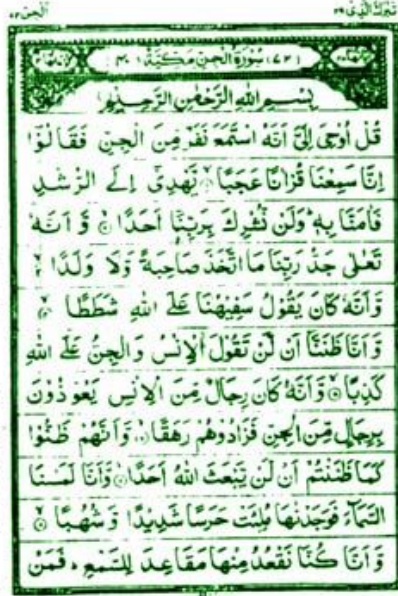 تبٰرك الذی ٢٩
الجن ٧٢
(٧٢) سُوْرَةُ الْجِنِّ مَكِّيَّةٌ (٤٠)
بِسْمِ اللهِ الرَّحْمٰنِ الرَّحِيْمِ
قُلْ اُوْحِیَ اِلَیَّ اَنَّهُ اسْتَمَعَ نَفَرٌ مِّنَ الْجِنِّ فَقَالُوْۤا
اِنَّا سَمِعْنَا قُرْاٰنًا عَجَبًا ۙ یَّهْدِیْۤ اِلَی الرُّشْدِ
فَاٰمَنَّا بِهٖ ؕ وَلَنْ نُّشْرِكَ بِرَبِّنَاۤ اَحَدًا ۙ وَّ اَنَّهٗ
تَعٰلٰی جَدُّ رَبِّنَا مَا اتَّخَذَ صَاحِبَةً وَّلَا وَلَدًا ۙ
وَّاَنَّهٗ كَانَ یَقُوْلُ سَفِیْهُنَا عَلَی اللهِ شَطَطًا ۙ
وَّ اَنَّا ظَنَنَّاۤ اَنْ لَّنْ تَقُوْلَ الْاِنْسُ وَ الْجِنُّ عَلَی اللهِ
كَذِبًا ۙ وَّاَنَّهٗ كَانَ رِجَالٌ مِّنَ الْاِنْسِ یَعُوْذُوْنَ
بِرِجَالٍ مِّنَ الْجِنِّ فَزَادُوْهُمْ رَهَقًا ۙ وَّاَنَّهُمْ ظَنُّوْا
كَمَا ظَنَنْتُمْ اَنْ لَّنْ یَّبْعَثَ اللهُ اَحَدًا ۙ وَّاَنَّا لَمَسْنَا
السَّمَآءَ فَوَجَدْنٰهَا مُلِئَتْ حَرَسًا شَدِیْدًا وَّ شُهُبًا ۙ
وَّ اَنَّا كُنَّا نَقْعُدُ مِنْهَا مَقَاعِدَ لِلسَّمْعِ ؕ فَمَنْ